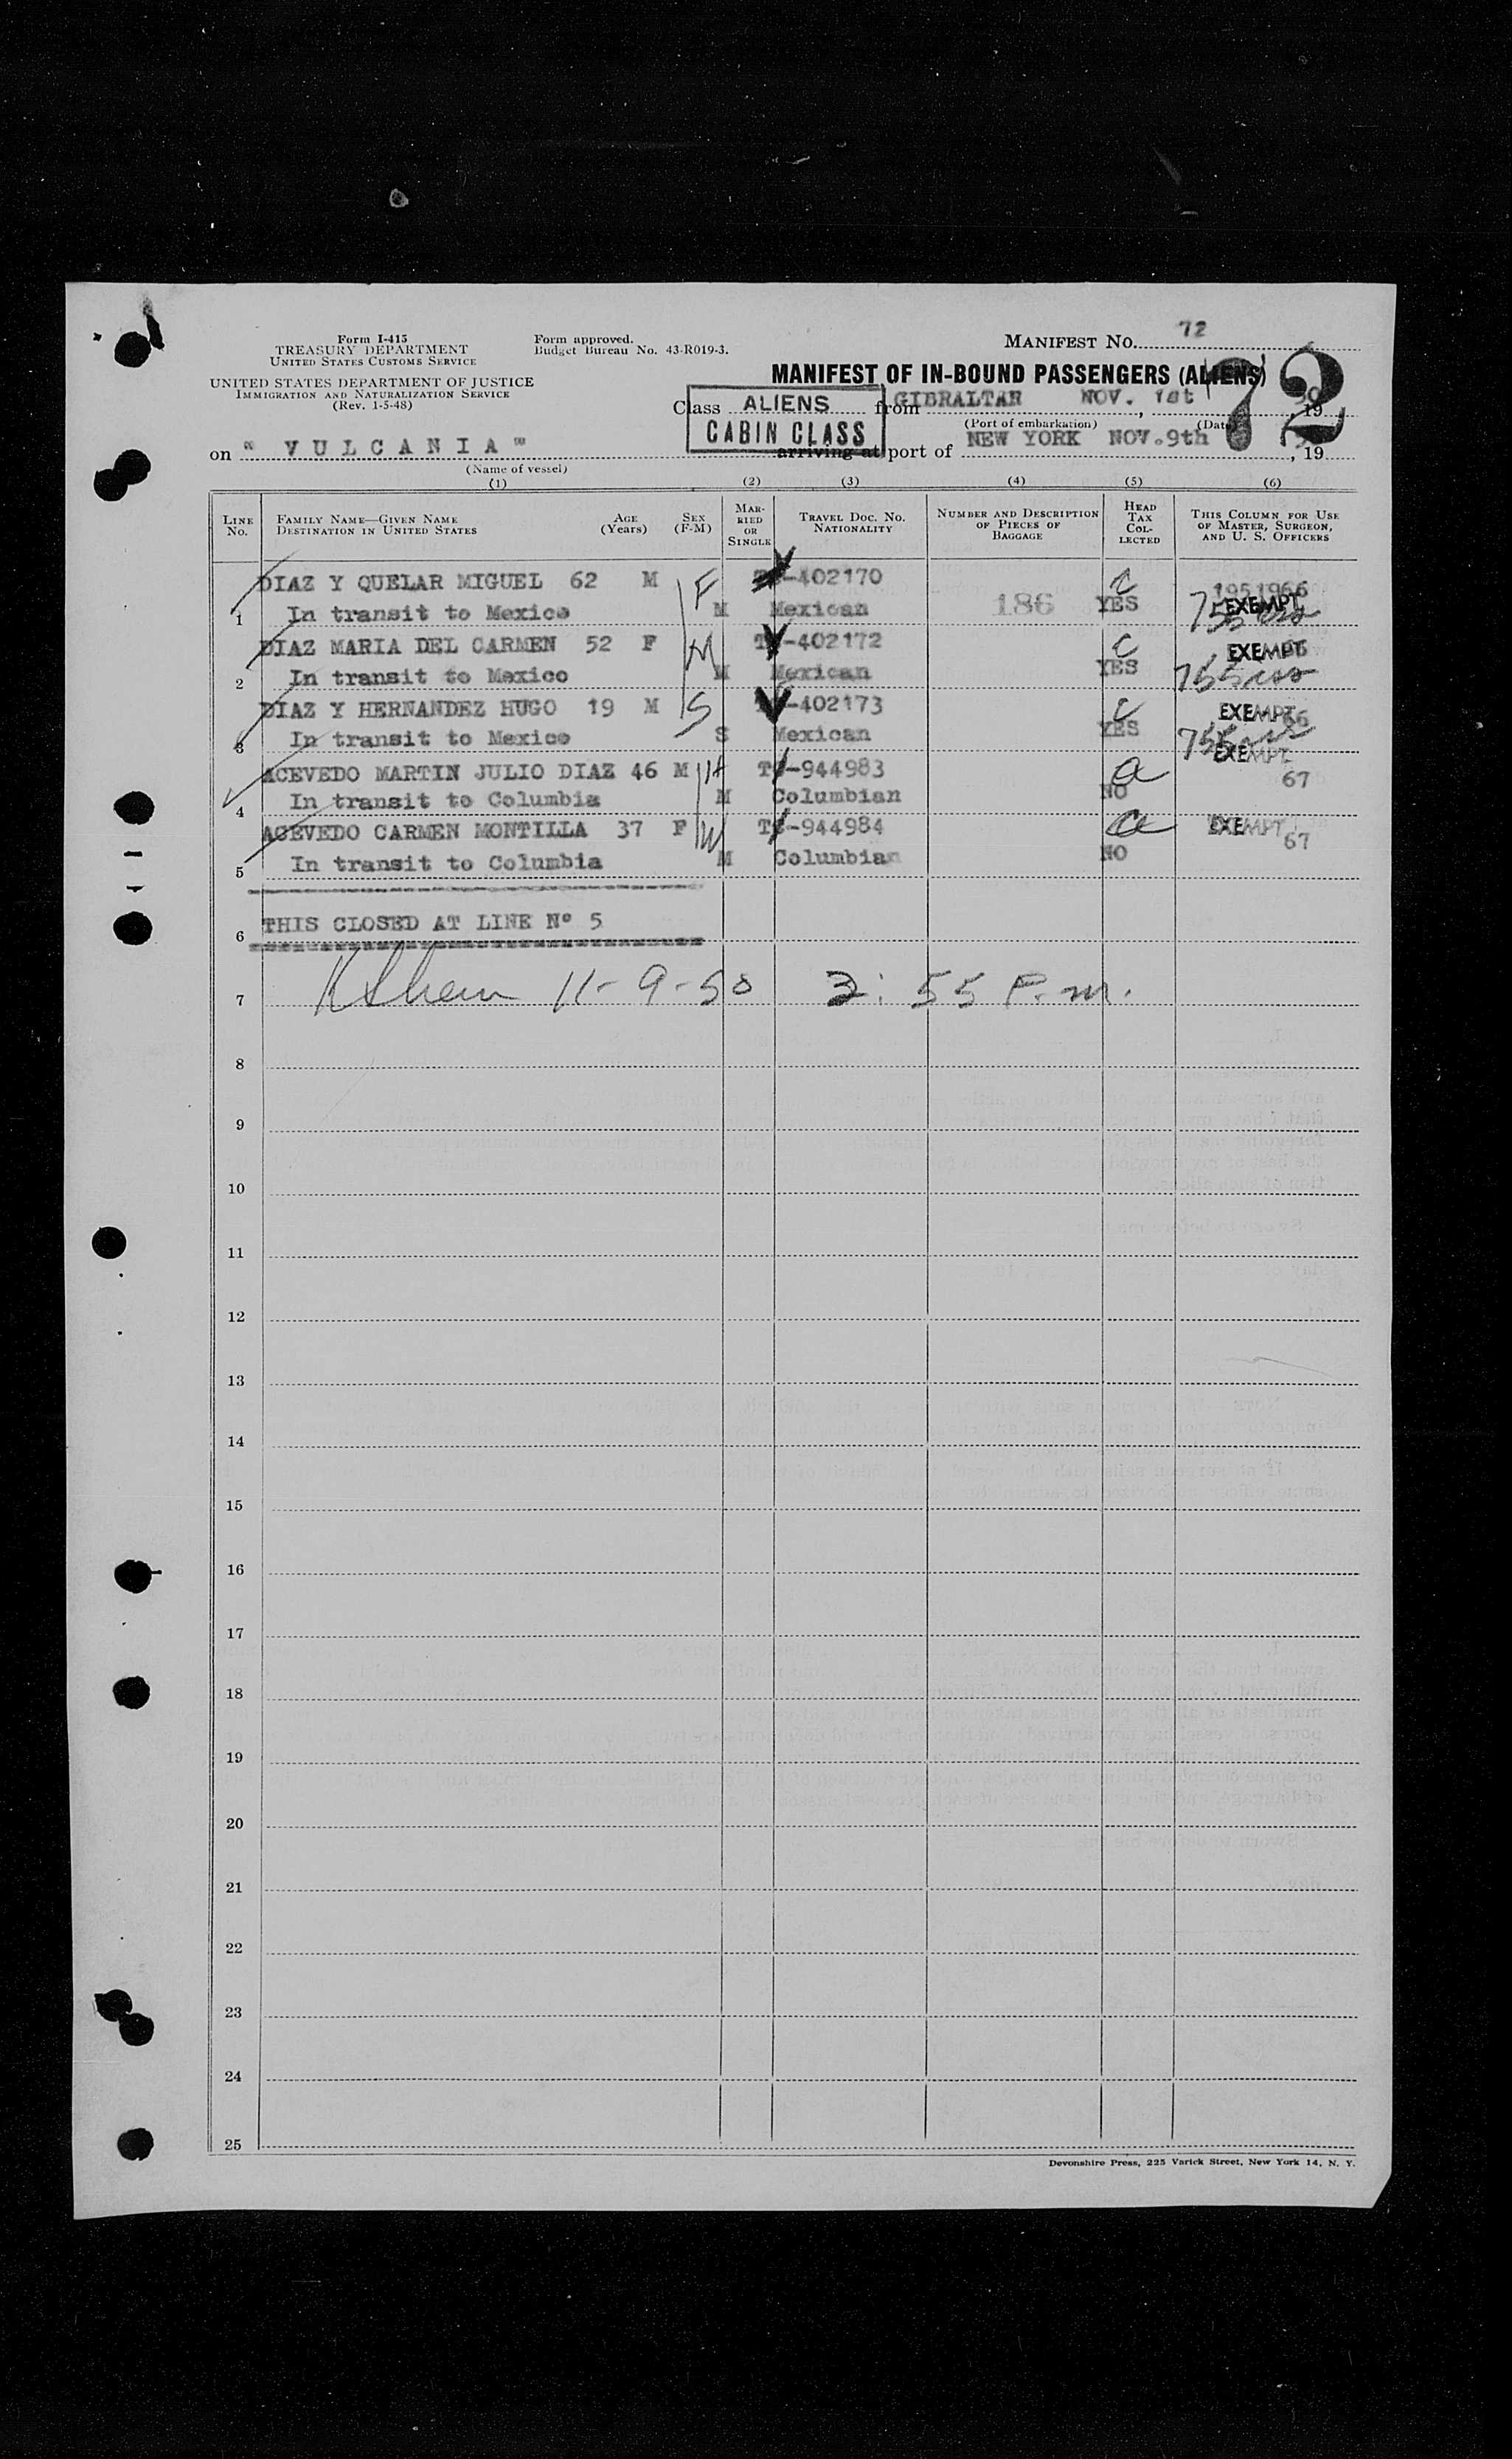 Form I-415
TREASURY DEPARTMENT
UNITED STATES CUSTOMS SERVICE
UNITED STATES DEPARTMENT OF JUSTICE
IMMIGRATION AND NATURALIZATION SERVICE
(Rev. 1-5-48)
Form approved.
Budget Bureau No. 43-R019-3.
MANIFEST No. 72
MANIFEST OF IN-BOUND PASSENGERS (ALIENS)
72
Class ALIENS from GIBRALTAR NOV. 1st, 1950
CABIN CLASS
(Port of embarkation) (Date)
on " VULCANIA " arriving at port of NEW YORK NOV. 9th, 19
(Name of vessel)
(1) (2) (3) (4) (5) (6)
LINE No. FAMILY NAME—GIVEN NAME DESTINATION IN UNITED STATES AGE (Years) SEX (F-M) MARRIED OR SINGLE TRAVEL DOC. No. NATIONALITY NUMBER AND DESCRIPTION OF PIECES OF BAGGAGE HEAD TAX COLLECTED THIS COLUMN FOR USE OF MASTER, SURGEON, AND U. S. OFFICERS
DIAZ Y QUELAR MIGUEL 62 M F -402170 C 1951966
1 In transit to Mexico M Mexican 186 YES EXEMPT 755
DIAZ MARIA DEL CARMEN 52 F M -402172 C EXEMPT 66
2 In transit to Mexico M Mexican YES 755
DIAZ Y HERNANDEZ HUGO 19 M S -402173 C EXEMPT 66
3 In transit to Mexico S Mexican YES 755
ACEVEDO MARTIN JULIO DIAZ 46 M H -944983 a EXEMPT 67
4 In transit to Columbia M Columbian NO
ACEVEDO CARMEN MONTILLA 37 F W -944984 a EXEMPT 67
5 In transit to Columbia M Columbian NO
6 THIS CLOSED AT LINE Nº 5
7 11-9-50 2:55 P.m.
8
9
10
11
12
13
14
15
16
17
18
19
20
21
22
23
24
25
Devonshire Press, 225 Varick Street, New York 14, N. Y.